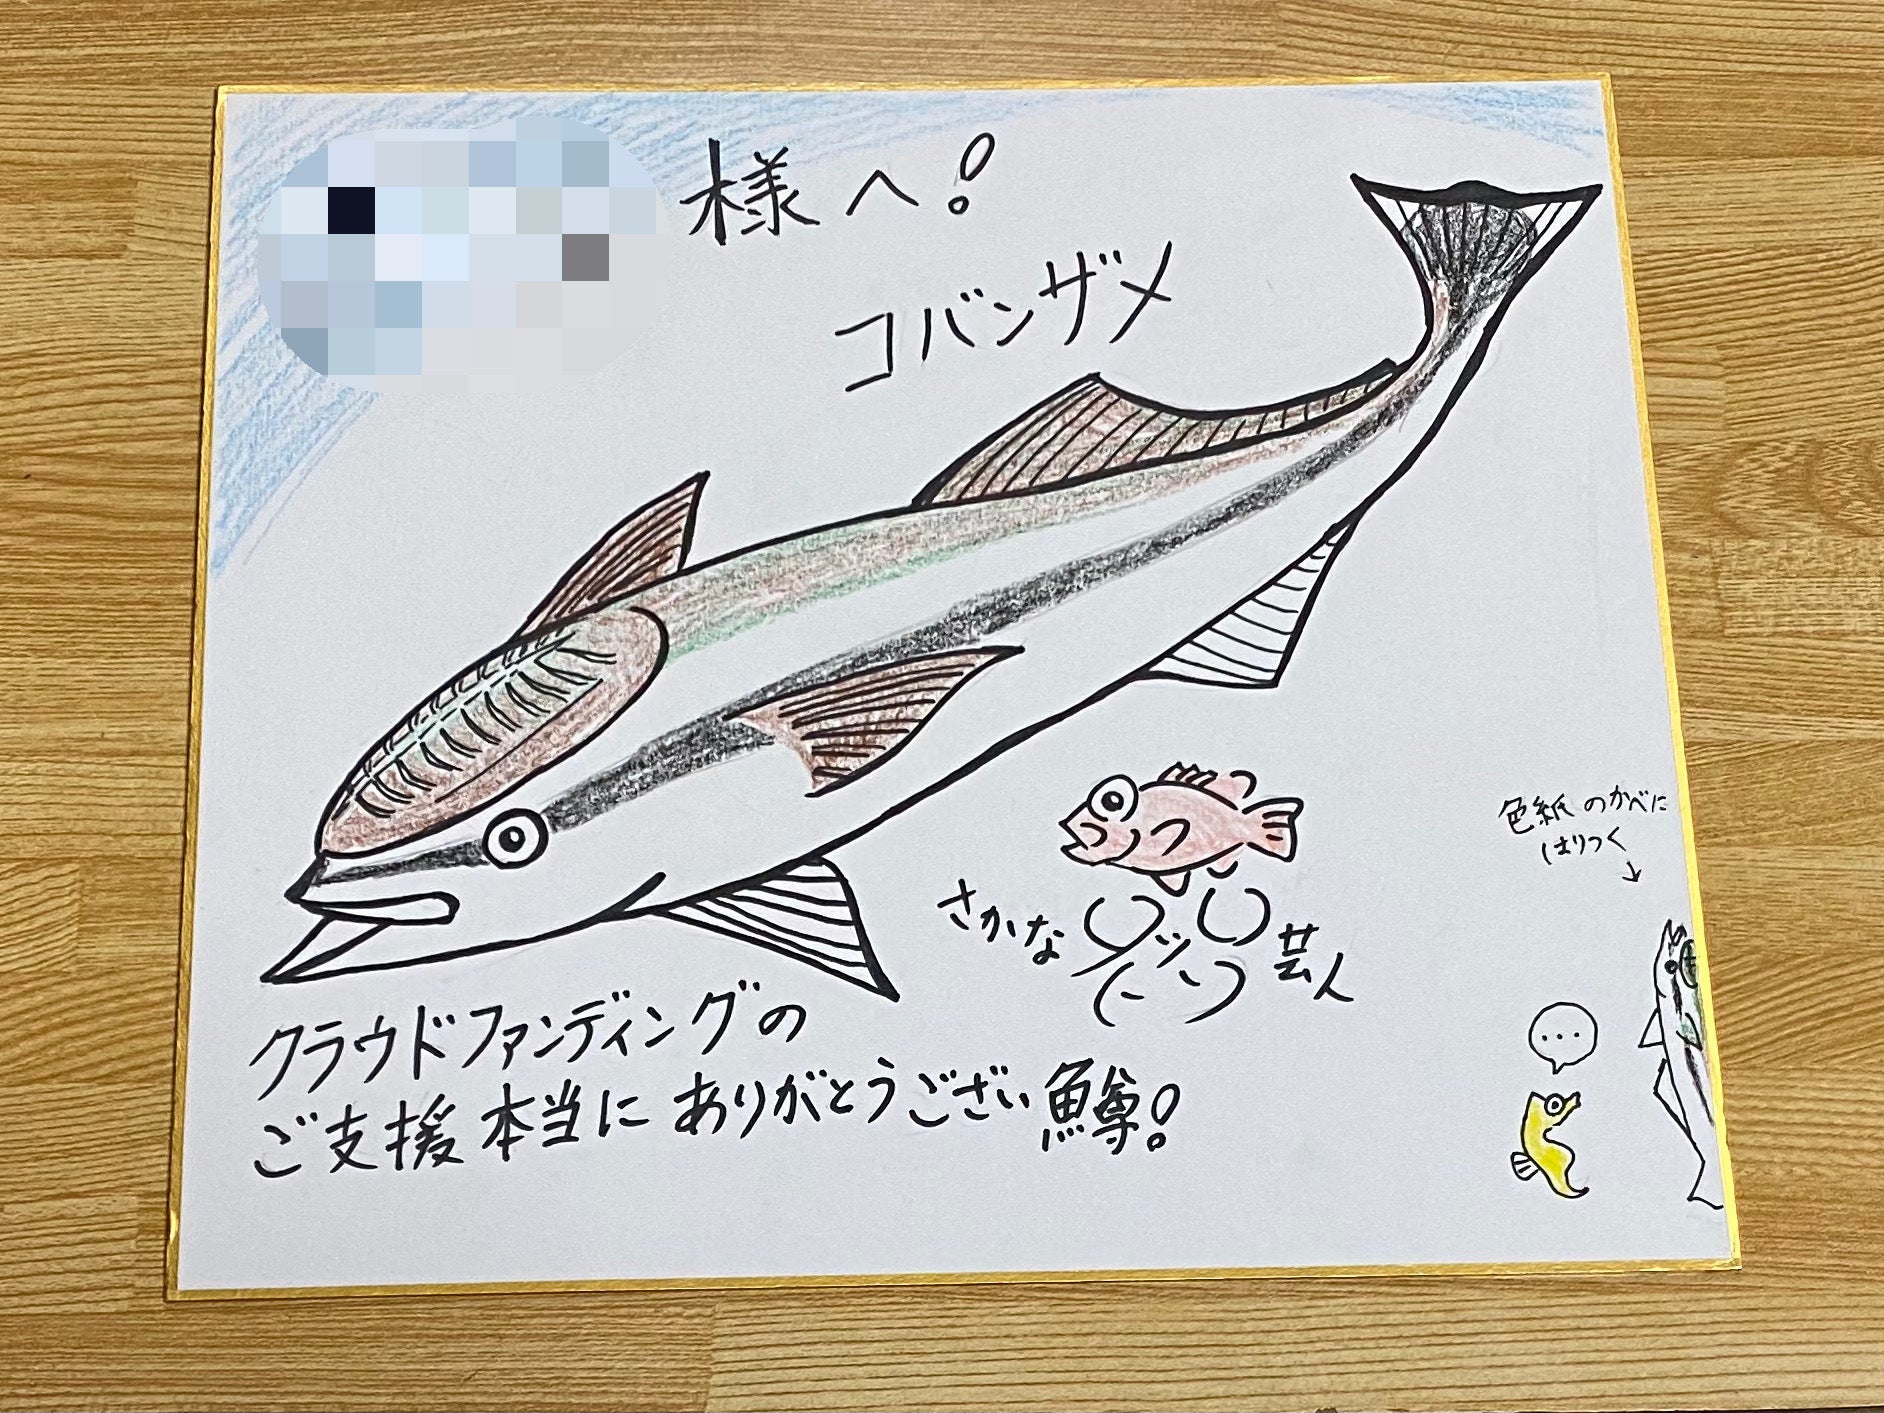 様へ!
コバンザメ
色紙のかべに
はりつく
↓
さかな
芸人
…
クラウドファンディングの
ご支援本当にありがとうござい鱒!